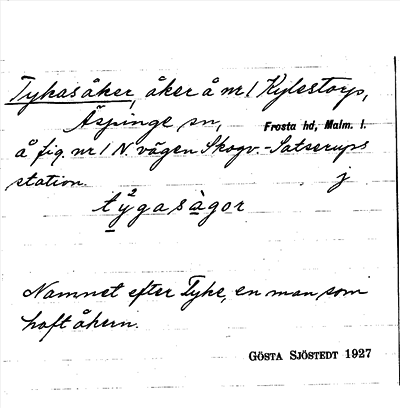 Tykasåker, åker å nr 1 Kylestorp,
Äspinge sn, Frosta hd, Malm. l.
å fig. nr 1 N. vägen Skogv.-Satserups
station. j
t ý2gasàgor
Namnet efter Tyke, en man som
haft åkern.
GÖSTA SJÖSTEDT 1927